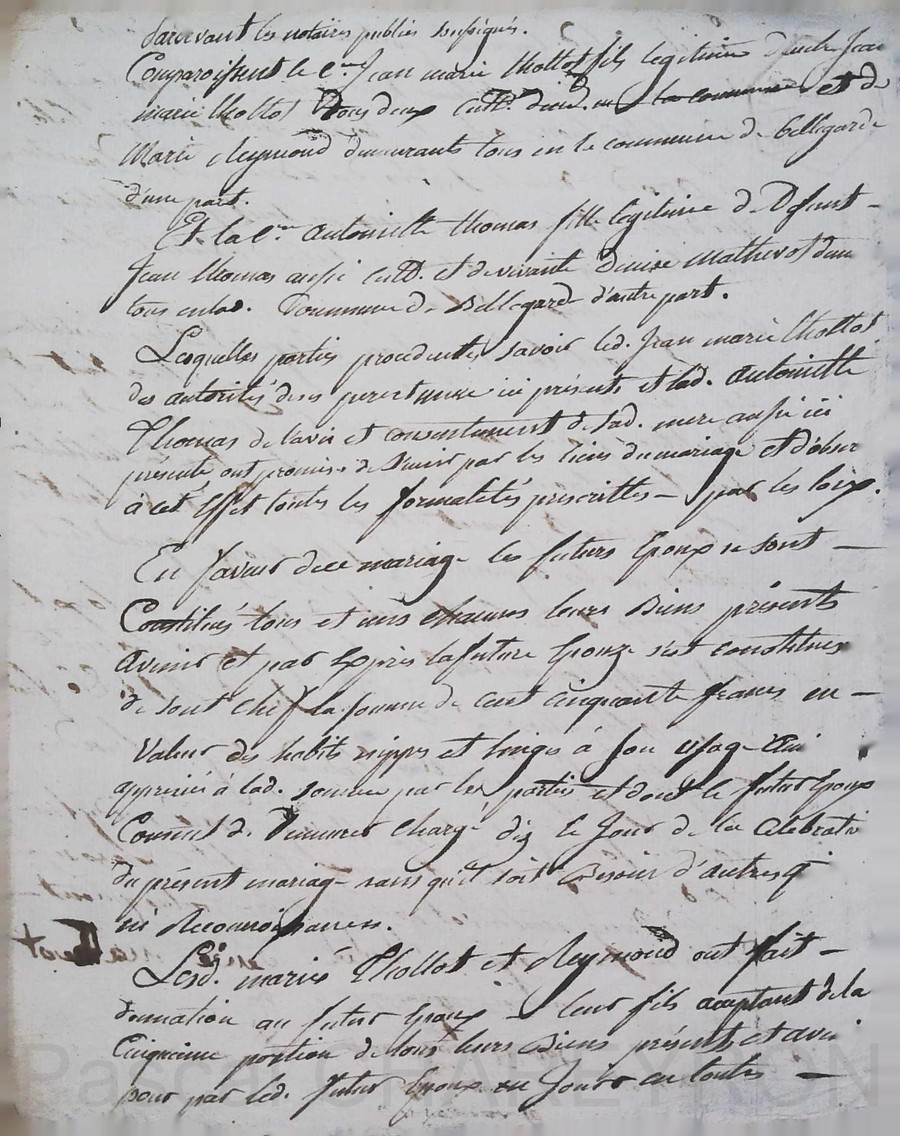 Pardevant les notaires publics soussignés.
Comparoissent le c.en Jean marie thollot fils légitime de Jean
marie thollot tous deux cult.rs et de
Marie Reymond demeurants tous en le commune de bellegarde
d'une part.
Et la c.ne Antoinette thomas fille légitime de Defunt -
Jean thomas aussi cult. et de vivante Denise Mathevot dem
tous enlad. Commune de Bellegarde d'autre part.
Lesquelles parties procedentes, savoir led. Jean marie thollot
des autorités deses pere et mere ici présents et lad. Antoinette
Thomas de l'avis et consentement de sad. mere aussi ici
présente ont promis de s'unir par les liens du mariage et d'obser
à cet Effet toutes les formalités prescrittes - par les loix.
En faveur de ce mariage les futurs Epoux se sont -
Constitués tous et uns chacuns leurs Biens présents
avenir et par Exprès la future Epouze s'est constituée
de sont chef la somme de cent cinquante francs en -
Valeur des habits nippes et linges à son usage
apprecié à lad. somme par les parties et dont le futur Epoux
Consent de demeurer chargé dig le Jour de la Celebratio
du présent mariage sans qu'il soit Besoin d'autres q
ni Reconnoissances.
Lesd. mariés Thollot et Reymond ont fait -
donnation au futur Epoux - leur fils acceptant de la
Cinquieme portion de tous leurs Biens présents et aveni
pour par led. futur Epoux en Jouir en toutes -
Pascal CHARETRON